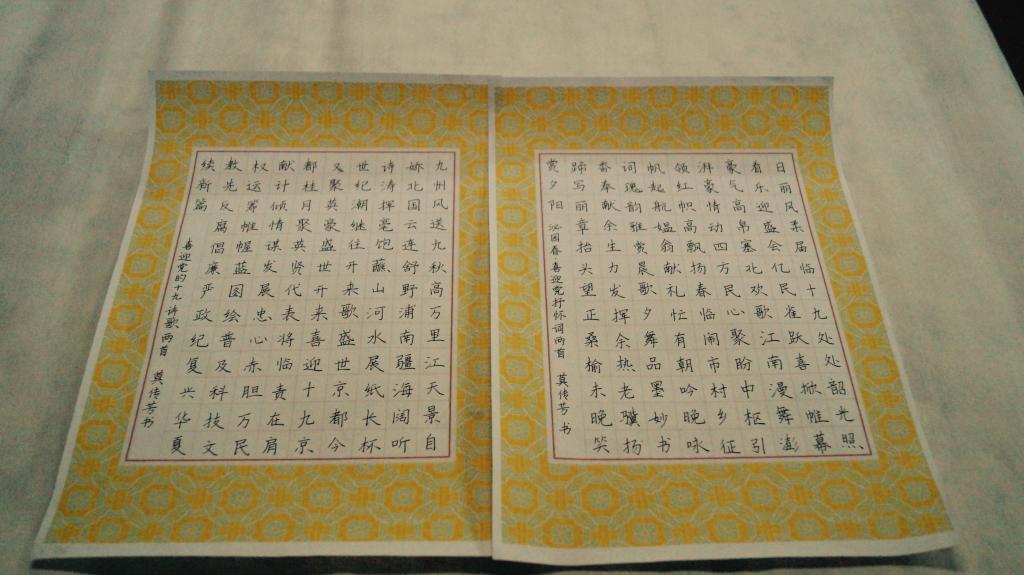 日丽风柔届临十九处处韶光照
看乐迎盛会亿民雀跃喜掀帷幕
豪气高帛塞北欢歌江南漫舞澎
湃豪情动四方民心聚盼中枢引
领红帜高飘扬春临闹市村乡征
帆起航媪翁献礼忙有朝吟晚咏
词瑰韵雅赏晨歌夕舞品墨妙书
香奉献余生力发挥余热老骥扬
蹄写丽章抬头望正桑榆未晚笑
赏夕阳
沁园春 喜迎党抒怀词两首 莫传芳书
九州风送九秋高万里江天景自
娇北国云连舒野浦南疆海阔听
诗涛挥毫饱蘸山河水展纸长杯
世纪潮继往开来歌盛世京都今
又聚英豪盛世开来喜迎十九京
都桂月聚英贤代表将临责在肩
献计倾情谋发展忠心赤胆万民
权运筹帷幄蓝图绘普及科技文
教先反腐倡廉严政纪复兴华夏
续新篇
喜迎党的十九 诗歌两首 莫传芳书